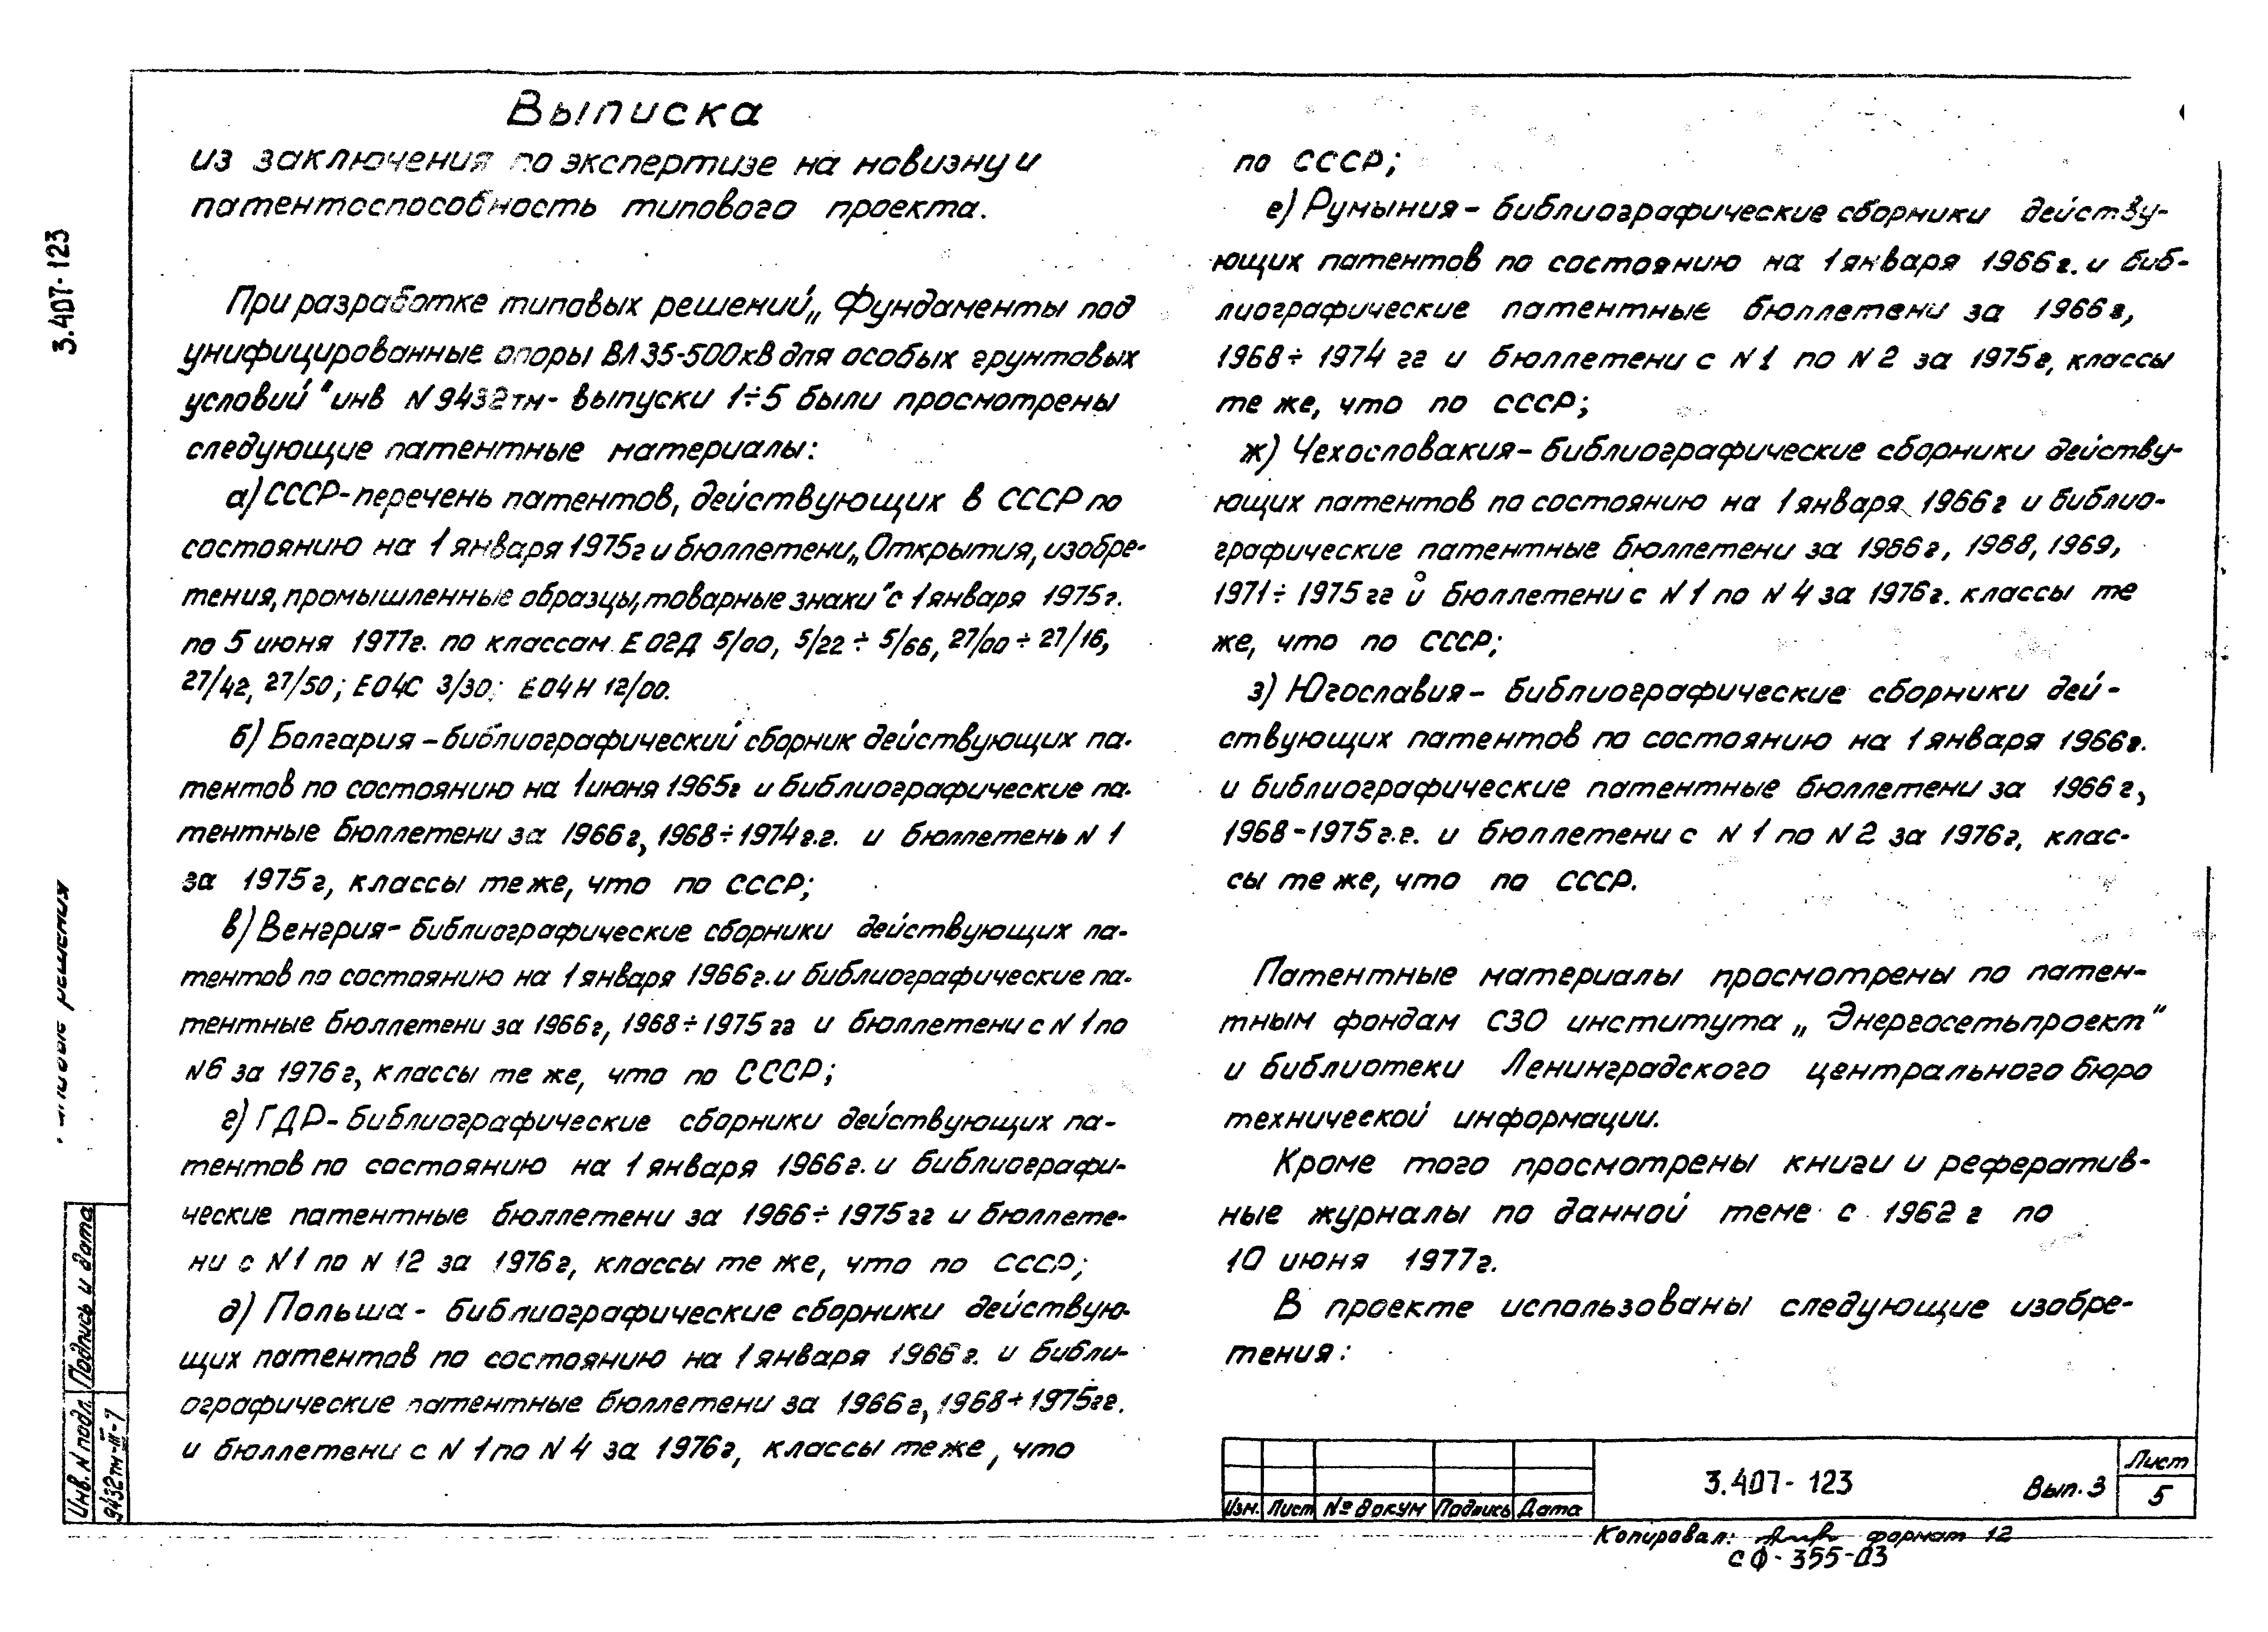 Выписка
из заключения по экспертизе на новизну и
патентоспособность типового проекта.
При разработке типовых решений „Фундаменты под
унифицированные опоры ВЛ 35-500кВ для особых грунтовых
условий" инв N 9432тм- выпуски 1÷5 были просмотрены
следующие патентные материалы:
а) СССР-перечень патентов, действующих в СССР по
состоянию на 1 января 1975г и бюллетени „Открытия, изобре-
тения, промышленные образцы, товарные знаки" с 1 января 1975г.
по 5 июня 1977г. по классам Е 02Д 5/00, 5/22 ÷ 5/66, 27/00 ÷ 27/16,
27/42, 27/50; Е04С 3/30; Е04Н 12/00.
б) Болгария - библиографический сборник действующих па-
тентов по состоянию на 1 июня 1965г и библиографические па-
тентные бюллетени за 1966г, 1968÷1974г.г. и бюллетень N 1
за 1975г, классы те же, что по СССР;
в) Венгрия - библиографические сборники действующих па-
тентов по состоянию на 1 января 1966г. и библиографические па-
тентные бюллетени за 1966г, 1968÷1975гг и бюллетени с N 1 по
N6 за 1976г, классы те же, что по СССР;
г) ГДР - библиографические сборники действующих па-
тентов по состоянию на 1 января 1966г. и библиографи-
ческие патентные бюллетени за 1966÷1975гг и бюллете-
ни с N1 по N 12 за 1976г, классы те же, что по СССР;
д) Польша - библиографические сборники действую-
щих патентов по состоянию на 1 января 1966г. и библи-
ографические патентные бюллетени за 1966г, 1968÷1975гг.
и бюллетени с N 1 по N 4 за 1976г, классы те же, что
по СССР;
е) Румыния - библиографические сборники действу-
ющих патентов по состоянию на 1 января 1966г. и биб-
лиографические патентные бюллетени за 1966г,
1968÷1974 гг и бюллетени с N1 по N2 за 1975г, классы
те же, что по СССР;
ж) Чехословакия - библиографические сборники действу-
ющих патентов по состоянию на 1 января 1966г и библио-
графические патентные бюллетени за 1966г, 1968, 1969,
1971÷1975гг и бюллетени с N1 по N4 за 1976г. классы те
же, что по СССР;
з) Югославия - библиографические сборники дей-
ствующих патентов по состоянию на 1 января 1966г.
и библиографические патентные бюллетени за 1966г,
1968-1975г.г. и бюллетени с N 1 по N 2 за 1976г, клас-
сы те же, что по СССР.
Патентные материалы просмотрены по патен-
тным фондам СЗО института „Энергосетьпроект"
и библиотеки Ленинградского центрального бюро
технической информации.
Кроме того просмотрены книги и рефератив-
ные журналы по данной теме с 1962г по
10 июня 1977г.
В проекте использованы следующие изобре-
тения:
3.407-123
решения
Инв. N подл. Подпись и дата
9432тм-III-7
Изм. Лист № докум Подпись Дата
3.407-123 Вып. 3
Лист
5
Копировал: формат 12
СФ-355-03